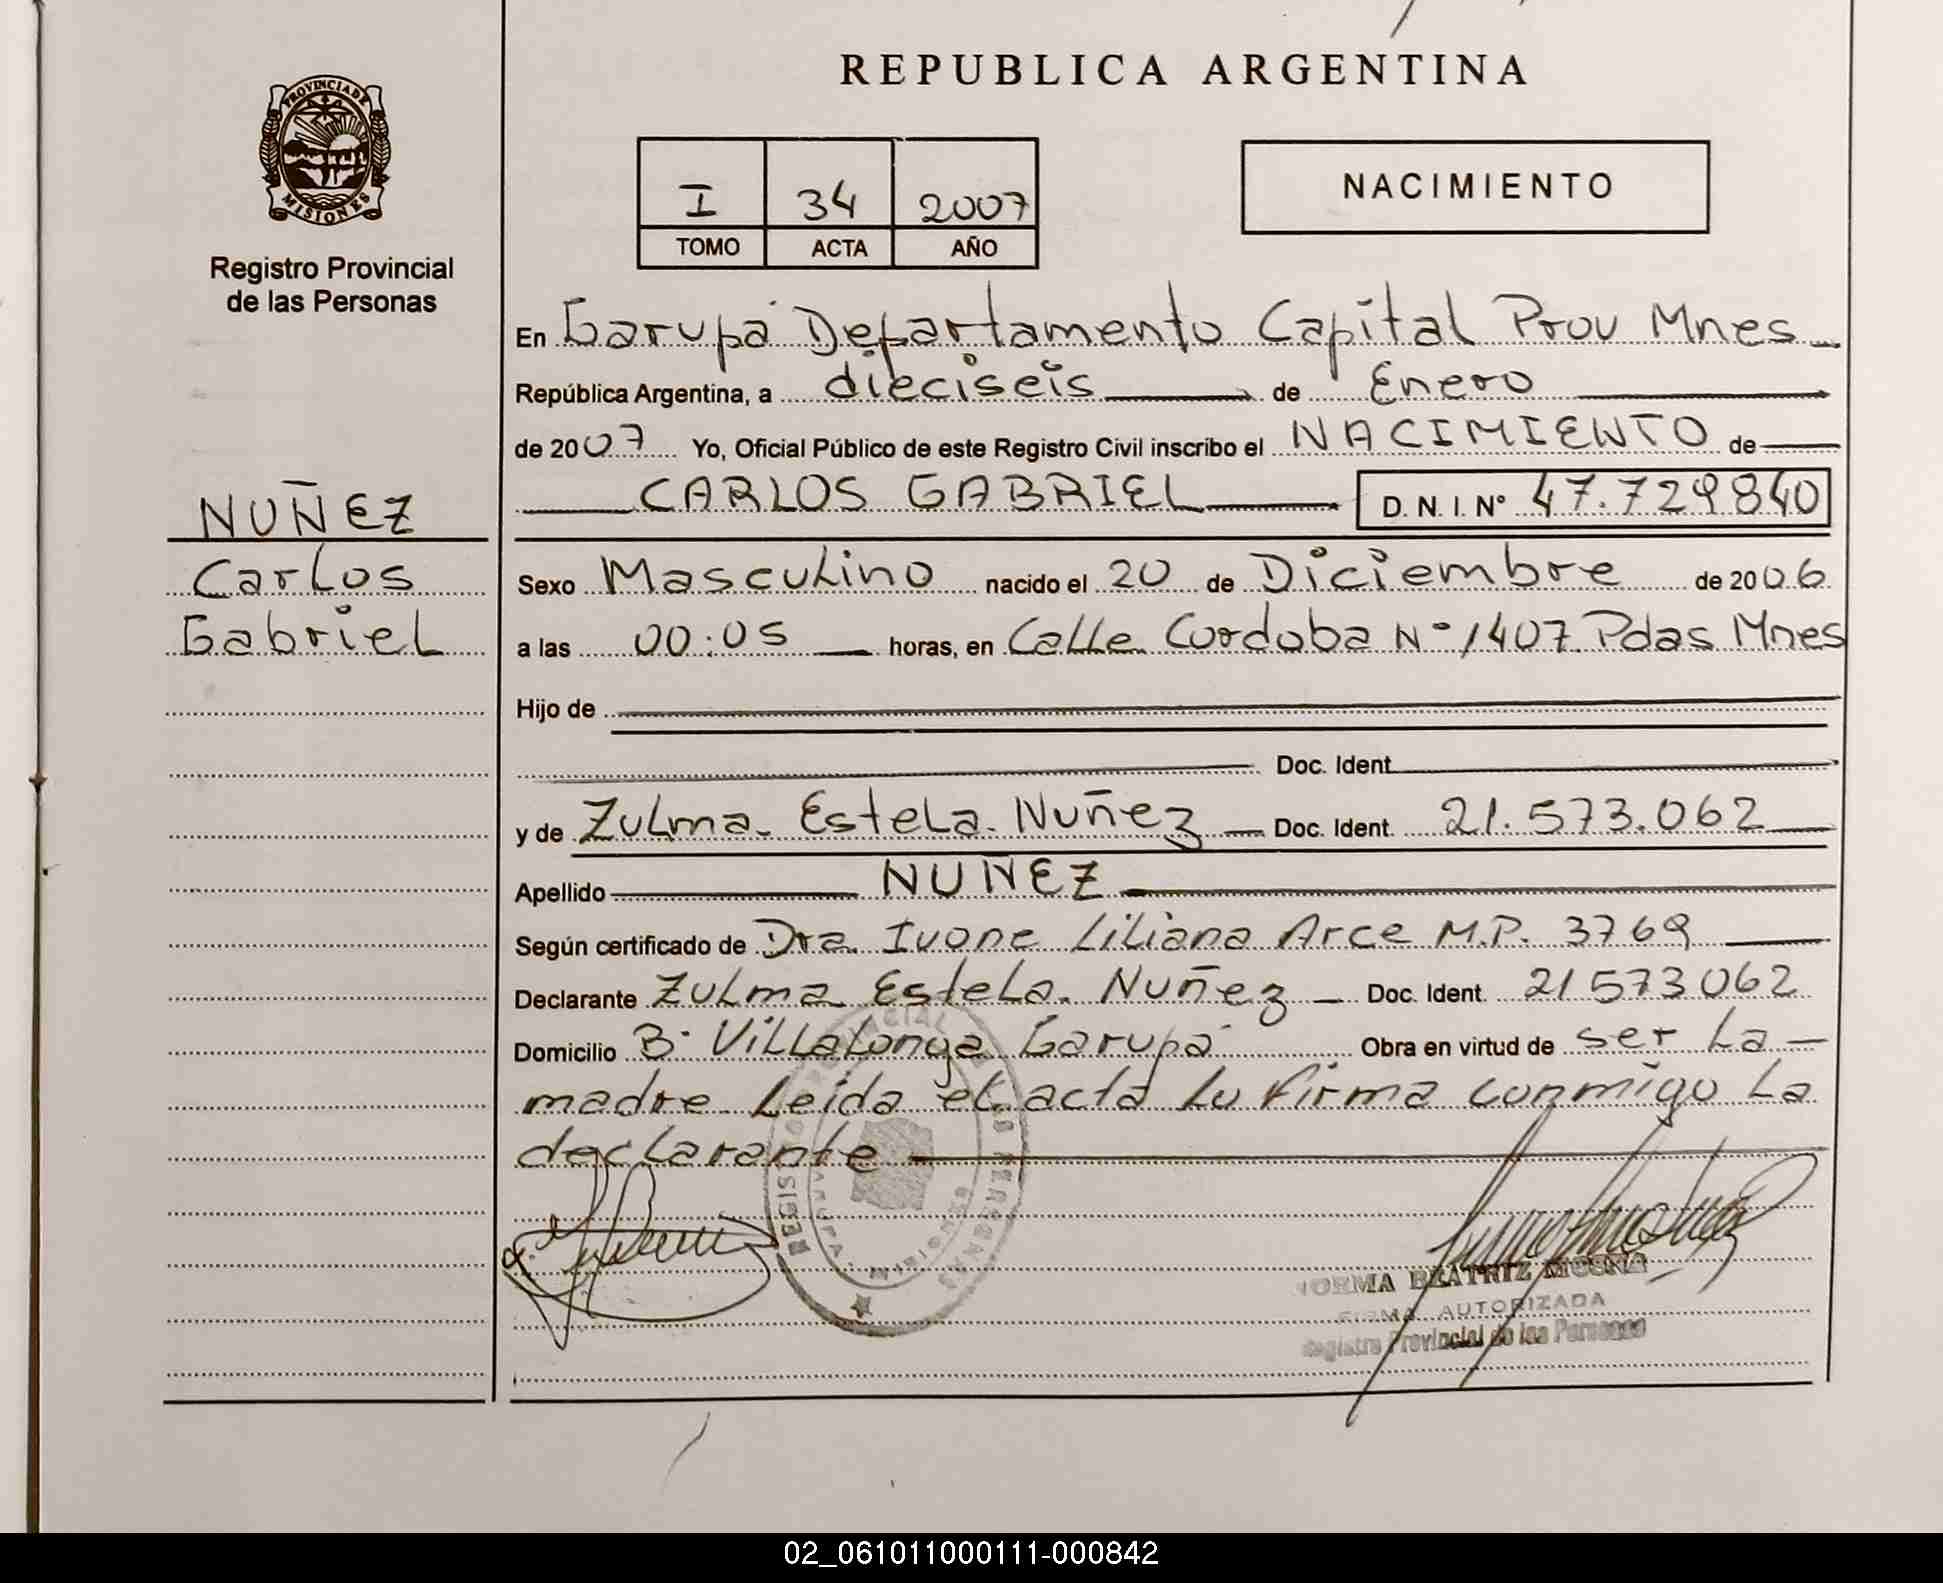 REPUBLICA ARGENTINA
PROVINCIA DE
MISIONES
Registro Provincial
de las Personas
I 34 2007
TOMO ACTA AÑO
NACIMIENTO
En Garupá Departamento Capital Prov Mnes
República Argentina, a dieciseis de Enero
de 2007 Yo, Oficial Público de este Registro Civil inscribo el NACIMIENTO de
CARLOS GABRIEL D. N. I. Nº 47.729840
NUÑEZ
Carlos
Gabriel
Sexo Masculino nacido el 20 de Diciembre de 2006
a las 00:05 horas, en Calle Cordoba Nº 1407 Pdas Mnes
Hijo de
Doc. Ident.
y de Zulma Estela Nuñez Doc. Ident. 21.573.062
Apellido NUÑEZ
Según certificado de Dra. Ivone Liliana Arce M.P. 3769
Declarante Zulma Estela Nuñez Doc. Ident. 21573062
Domicilio Bº Villalonga Garupá Obra en virtud de ser la
madre Leida el acta lo firma conmigo la
declarante
NORMA BEATRIZ
FIRMA AUTORIZADA
Registro Provincial de las Personas
02_061011000111-000842